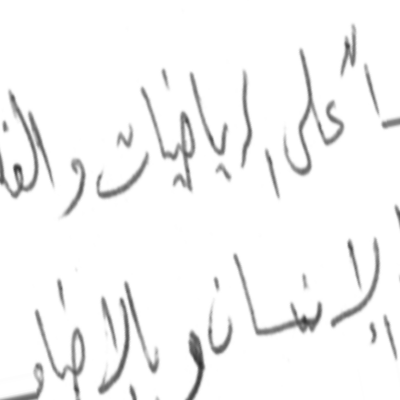 على الرياضيات والفـ
الإنسان وبالإضافـ